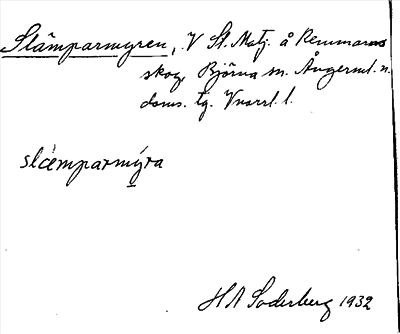 Stämparmyren, V St. Matj. å Remmarns
skog, Björna sn. Ångerml. n.
doms. tg. Vnorrl. l.
slämparmýra
H A Söderberg 1932